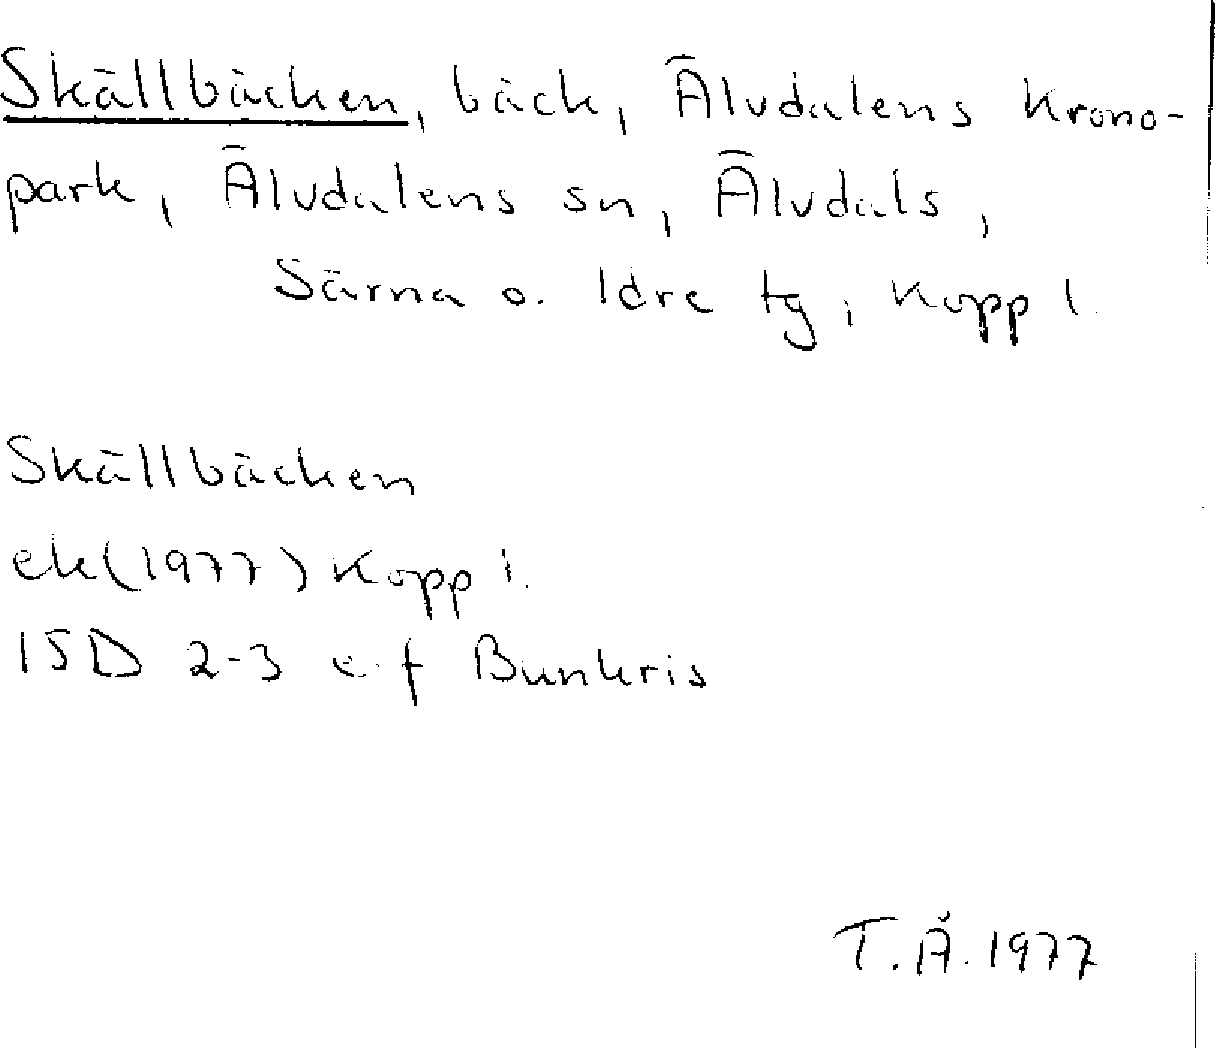 Skällbäcken, bäck, Älvdalens Krono-
park, Älvdalens sn, Älvdals,
Särna o. Idre tg, Kopp l.
Skällbäcken
ek(1977) Kopp l.
15D 2-3 e-f Bunkris
T.Å.1977